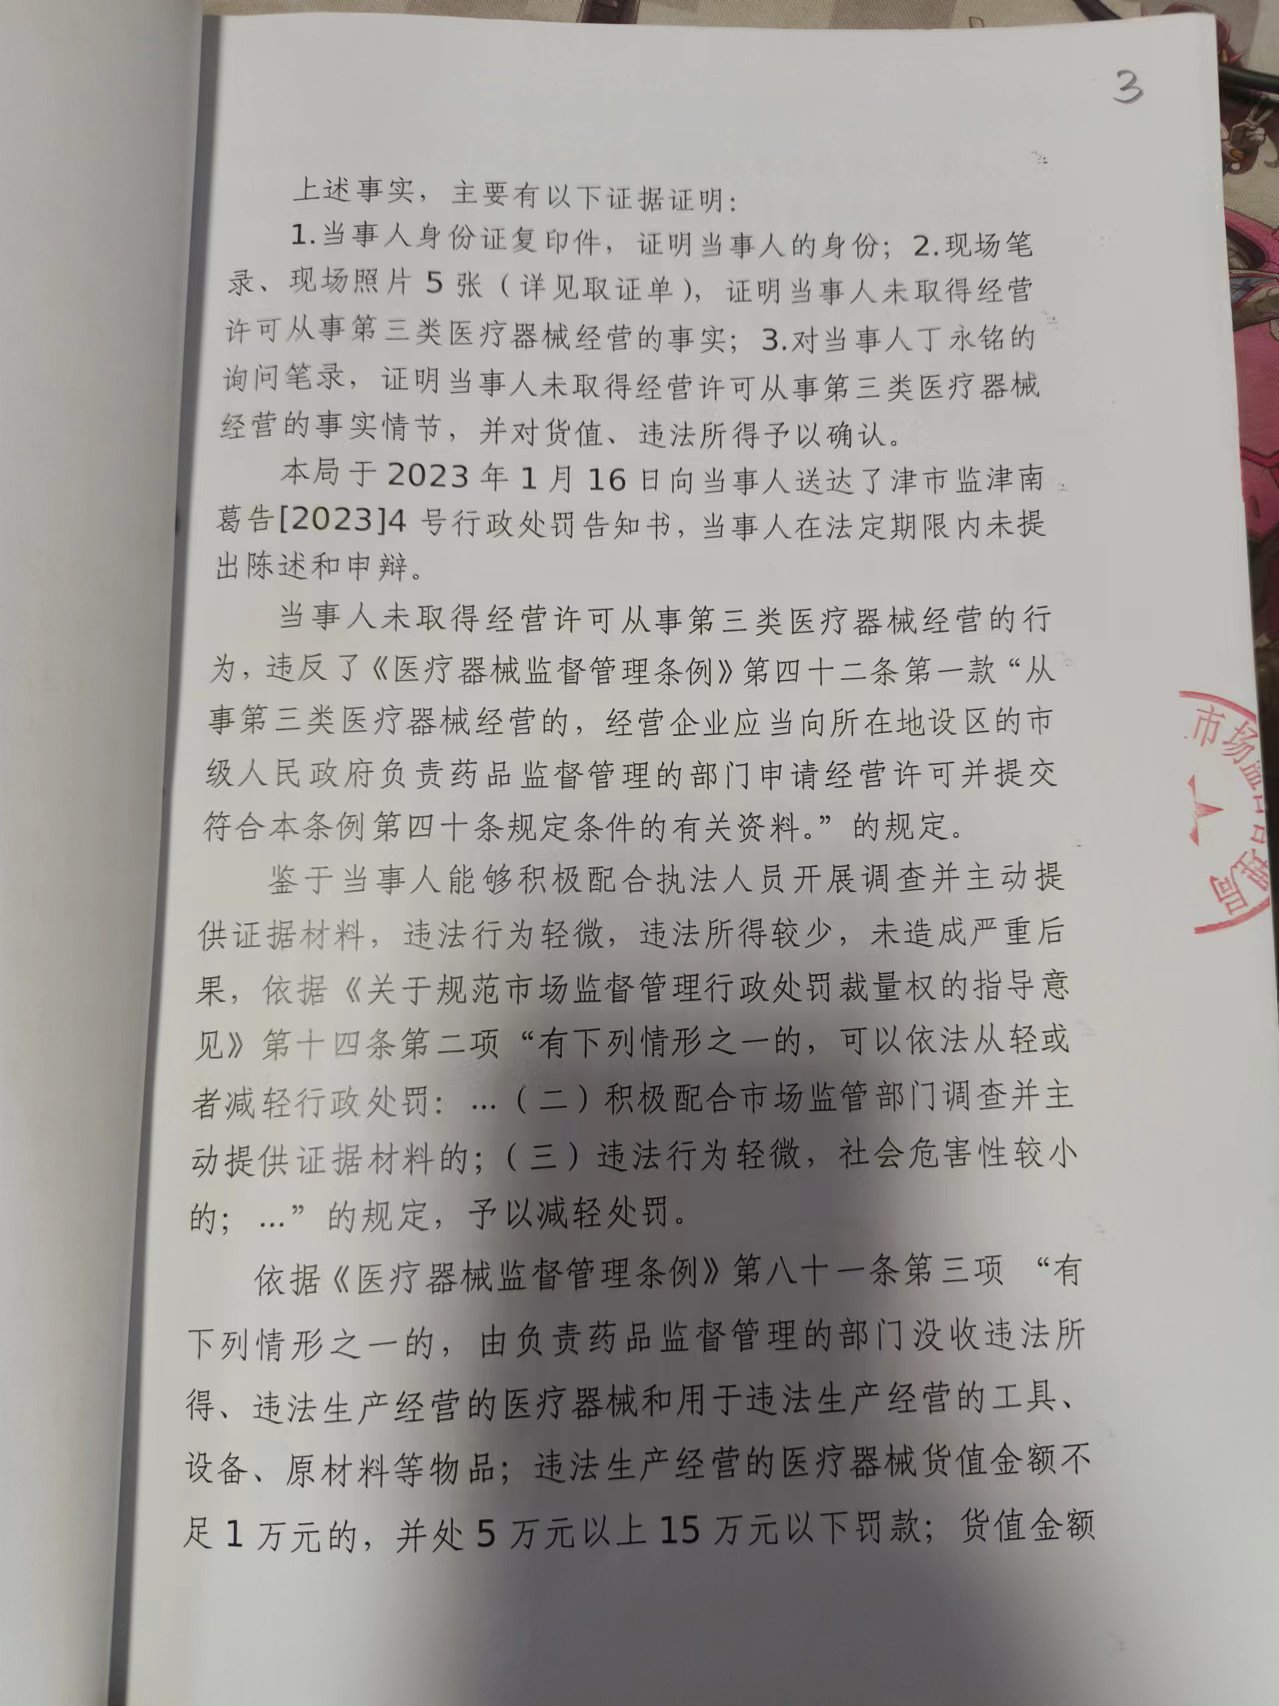 3
上述事实，主要有以下证据证明：
1.当事人身份证复印件，证明当事人的身份；2.现场笔
录、现场照片 5 张（详见取证单），证明当事人未取得经营
许可从事第三类医疗器械经营的事实；3.对当事人丁永铭的
询问笔录，证明当事人未取得经营许可从事第三类医疗器械
经营的事实情节，并对货值、违法所得予以确认。
本局于 2023 年 1 月 16 日向当事人送达了津市监津南
葛告[2023]4 号行政处罚告知书，当事人在法定期限内未提
出陈述和申辩。
当事人未取得经营许可从事第三类医疗器械经营的行
为，违反了《医疗器械监督管理条例》第四十二条第一款“从
事第三类医疗器械经营的，经营企业应当向所在地设区的市
级人民政府负责药品监督管理的部门申请经营许可并提交
符合本条例第四十条规定条件的有关资料。”的规定。
鉴于当事人能够积极配合执法人员开展调查并主动提
供证据材料，违法行为轻微，违法所得较少，未造成严重后
果，依据《关于规范市场监督管理行政处罚裁量权的指导意
见》第十四条第二项“有下列情形之一的，可以依法从轻或
者减轻行政处罚：…（二）积极配合市场监管部门调查并主
动提供证据材料的；（三）违法行为轻微，社会危害性较小
的；…”的规定，予以减轻处罚。
依据《医疗器械监督管理条例》第八十一条第三项 “有
下列情形之一的，由负责药品监督管理的部门没收违法所
得、违法生产经营的医疗器械和用于违法生产经营的工具、
设备、原材料等物品；违法生产经营的医疗器械货值金额不
足 1 万元的，并处 5 万元以上 15 万元以下罚款；货值金额
市场
理局